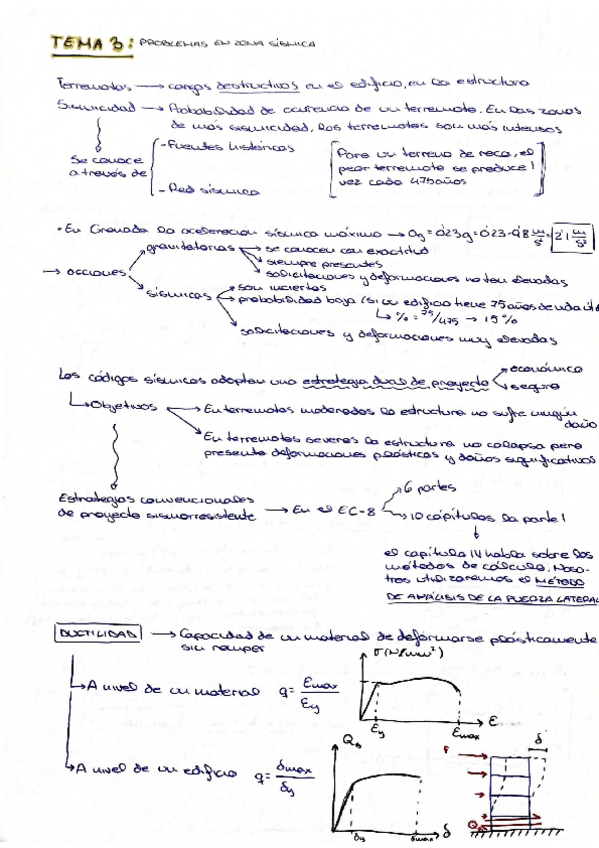 TEMA 3: PROBLEMAS EN ZONA SÍSMICA
Terremotos → cargas destructivas en el edificio, en la estructura
Sismicidad → Probabilidad de ocurrencia de un terremoto. En las zonas
de más sismicidad, los terremotos son más intensos
Se conoce
a través de
- Fuentes históricas
- Red sísmica
Para un terreno de roca, el
peor terremoto se produce 1
vez cada 475 años
• En Granada la aceleración sísmica máxima → ag = 0'23g = 0'23·9'8 m/s² = 2'1 m/s²
→ acciones
gravitatorias → se conocen con exactitud
→ siempre presentes
→ solicitaciones y deformaciones no tan elevadas
sísmicas → son inciertas
→ probabilidad baja (si un edificio tiene 75 años de vida út
↳ % = 75/475 → 15%
→ solicitaciones y deformaciones muy elevadas
Los códigos sísmicos adoptan una estrategia dual de proyecto → económico
→ seguro
↳ Objetivos → En terremotos moderados la estructura no sufre ningún
daño
→ En terremotos severos la estructura no colapsa pero
presenta deformaciones plásticas y daños significativos
Estrategias convencionales
de proyecto sismorresistente → En el EC-8
→ 6 partes
→ 10 cápitulos la parte 1
el capítulo IV habla sobre los
métodos de cálculo. Noso-
tros utilizaremos el MÉTODO
DE ANÁLISIS DE LA FUERZA LATERAL
DUCTILIDAD → Capacidad de un material de deformarse plásticamente
sin romper
↳ A nivel de un material q = εmax/εy
σ(N/mm²)
εy εmax ε
↳ A nivel de un edificio q = δmax/δy
Qb
δy δmax δ
F δ
Qb